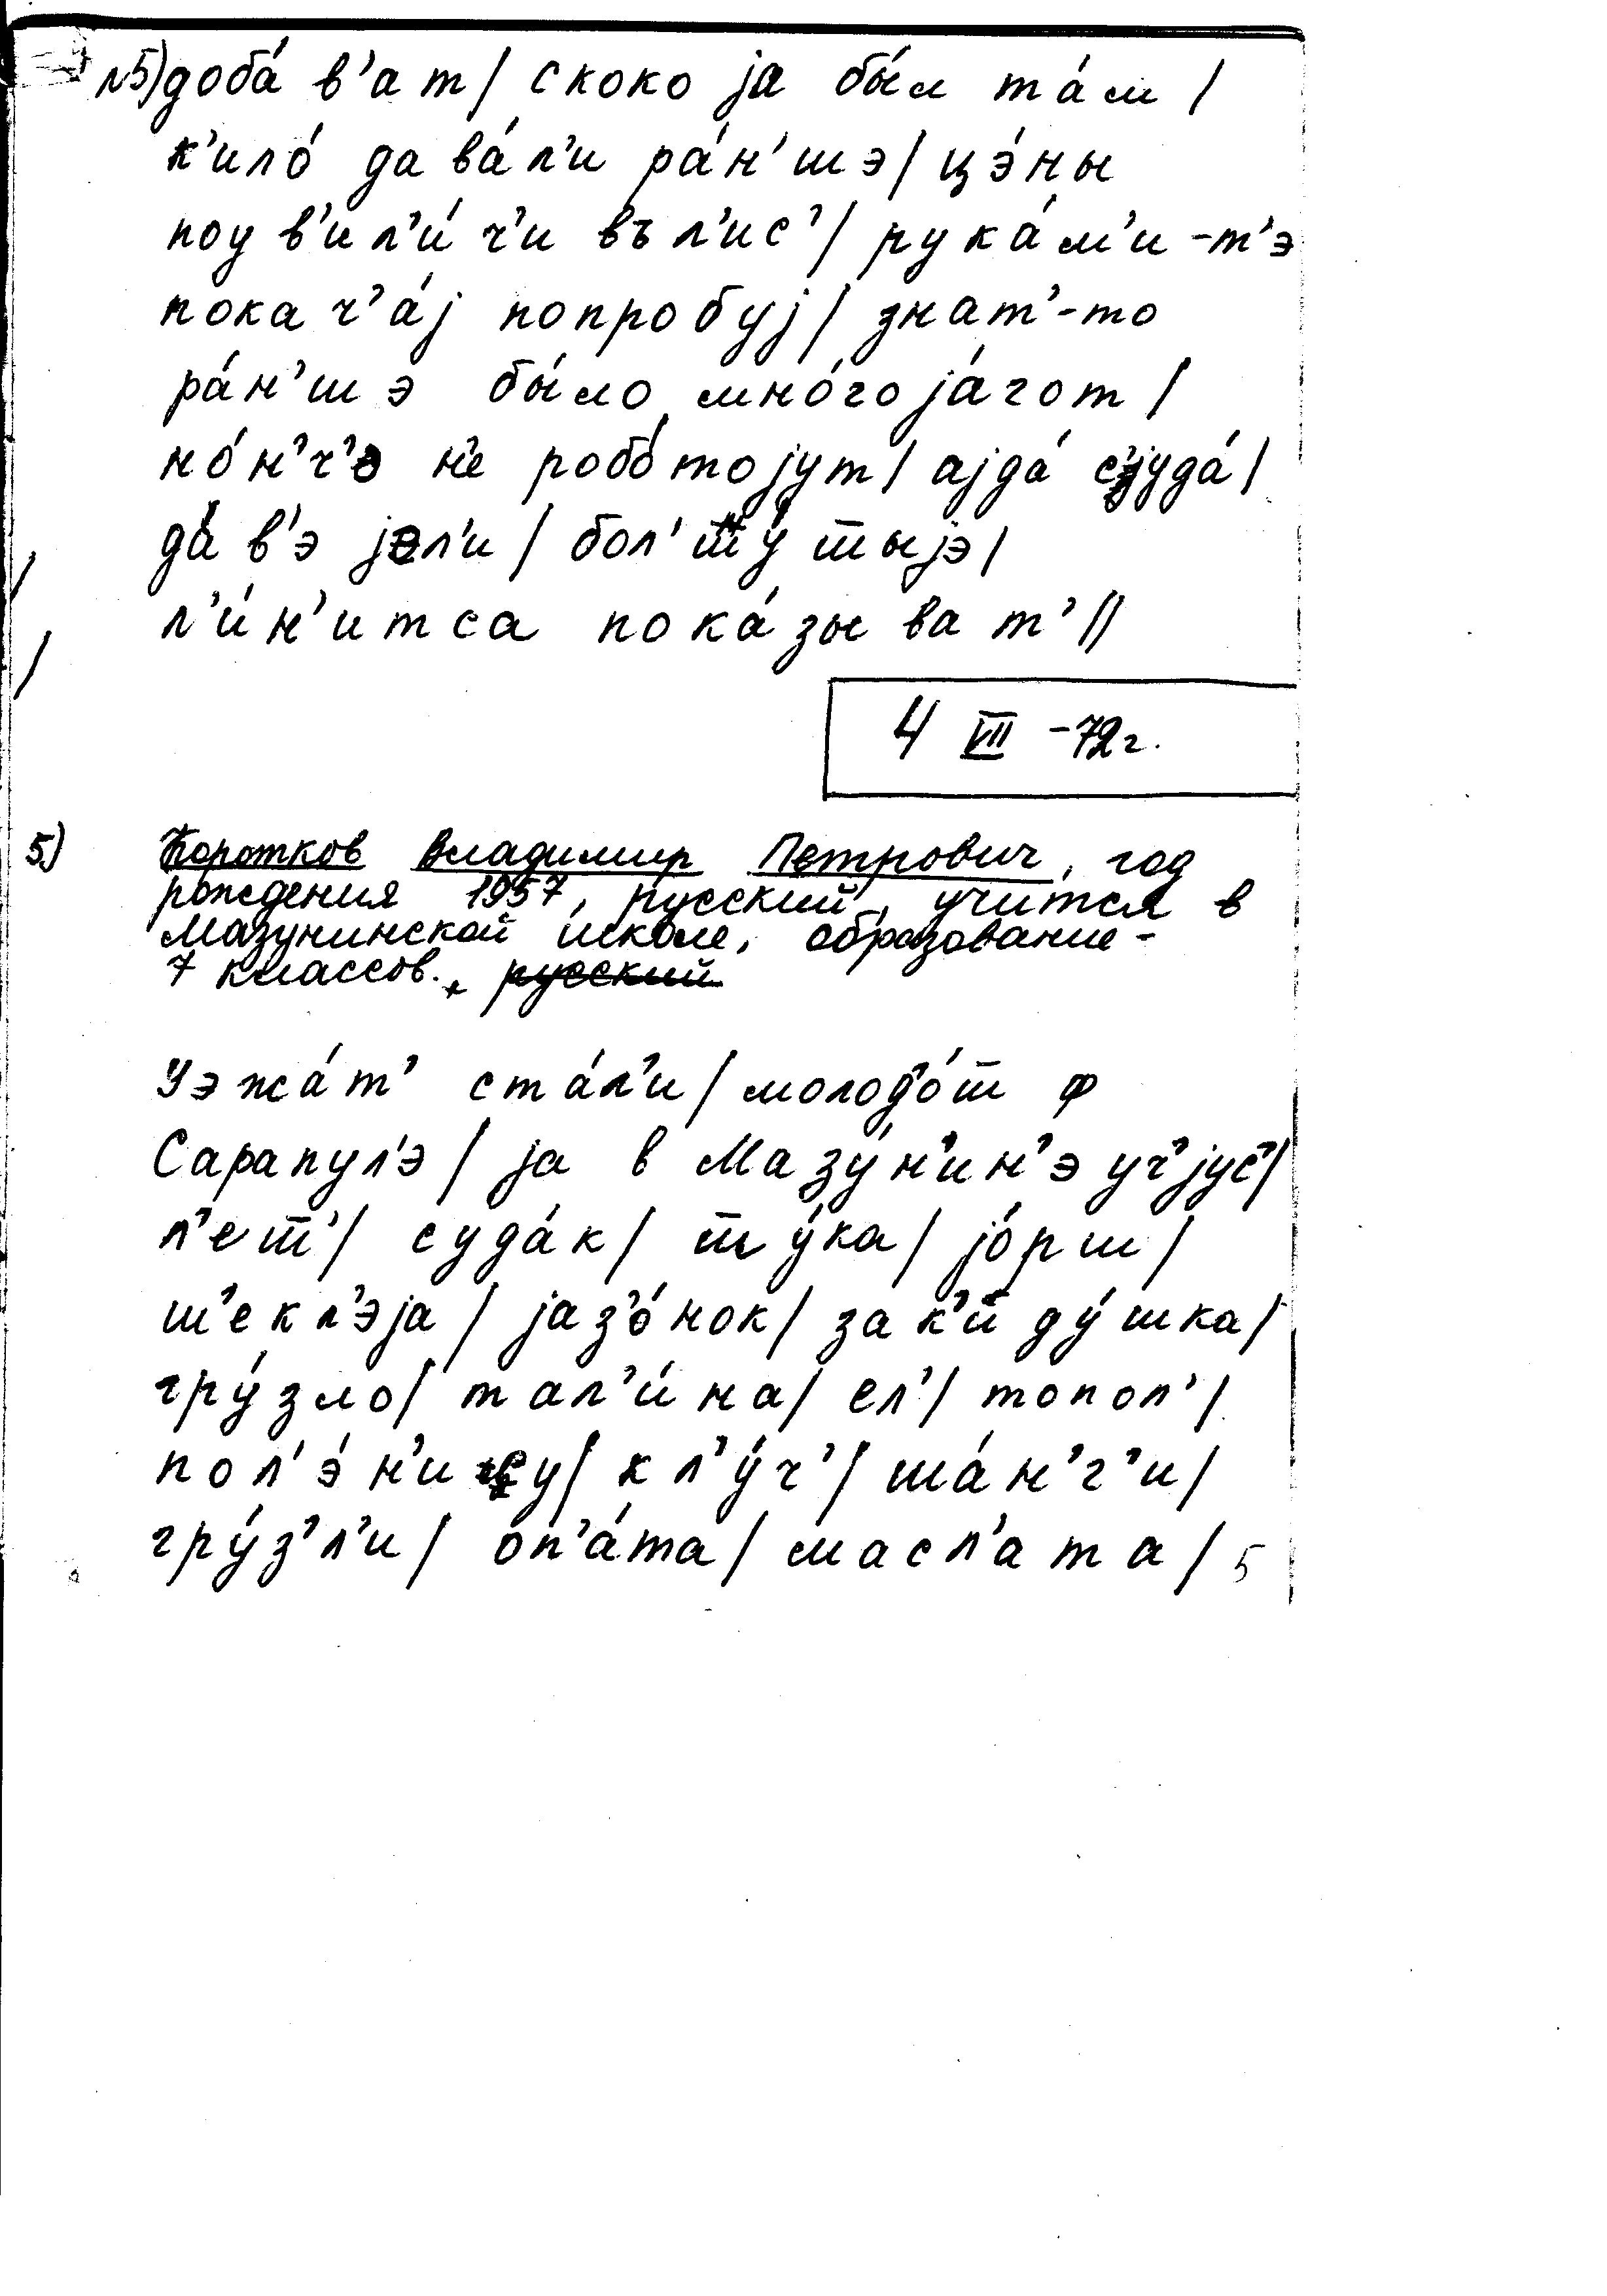 №5) доба́ в'ат / скоко jа бы́л та́м /
к'ило́ дава́л'и ра́н'шэ / цэ́ны
поув'ил'и́ч'ивъл'ис' / рука́м'и-т'э
покач'а́j попробуj / знат'-то
ра́н'шэ бы́ло мно́го jа́гот /
но́н'ч'э н'е робо́тоjут / аjда́ с'уда́ /
да́в'э jэл'и / бол'шу́шыjэ /
л'и́н'итса пока́зыват' //
4 VII -72г.
5) Коротков Владимир Петрович, год
рождения 1957, русский, учится в
Мазунинской школе, образование -
7 классов. русский
Уэжа́т' ста́л'и / молод'о́ш ф
Сарапул'э / jа в Мазу́н'ин'э уч'jус' /
л'еш' / суда́к / шу́ка / jо́рш /
ш'екл'эjа / jаз'о́нок / зак'иду́шка /
гру́зло / тал'и́на / ел' / топол' /
пол'э́н'ицу / кл'у́ч' / ша́н'г'и /
гру́з'л'и / оп'а́та / масл'ата / 5